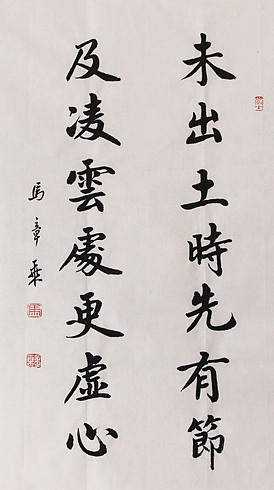 未出土時先有節
及凌雲處更虛心
馬章乘